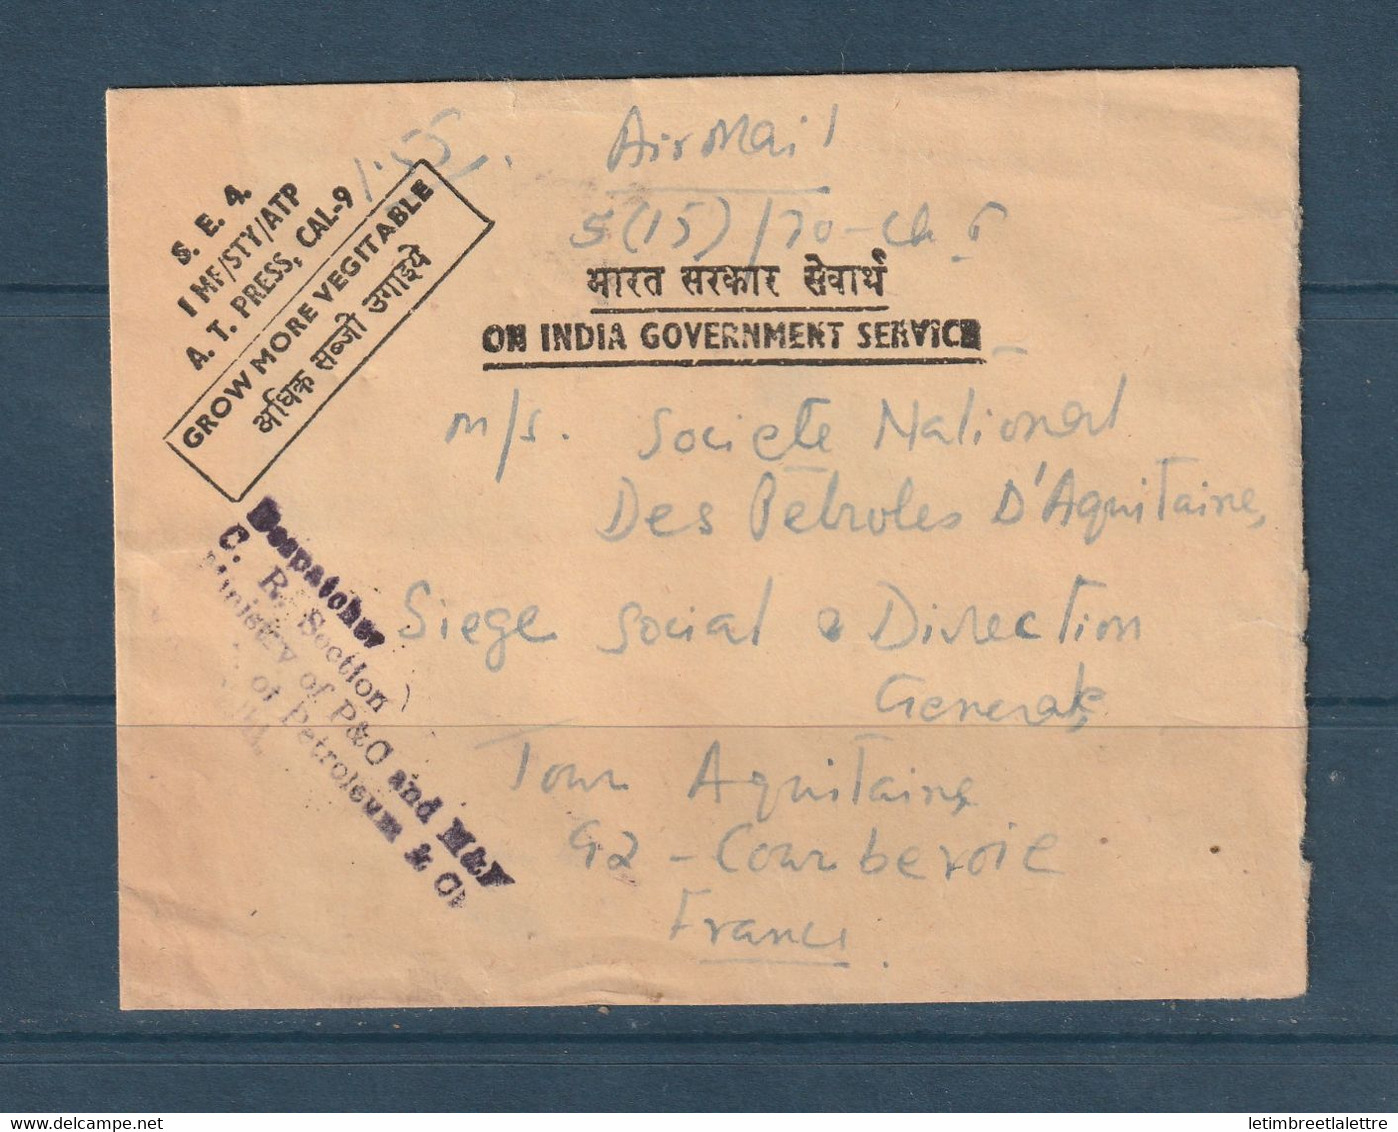 Air Mail
1.55
5(15)/70-Ch 6
S. E. 4.
1 MF/STY/ATP
A. T. PRESS, CAL-9
GROW MORE VEGITABLE
अधिक सब्जी उगाइये
भारत सरकार सेवार्थ
ON INDIA GOVERNMENT SERVICE
M/s. Societe National
Des Pétroles D'Aquitaine,
Siege Social & Direction
Generale
Tour Aquitaine
92 - Courbevoie
France.
Despatcher
C. R. Section
Ministry of P&C and M&M
of Petroleum & Ch
letimbreetlalettre